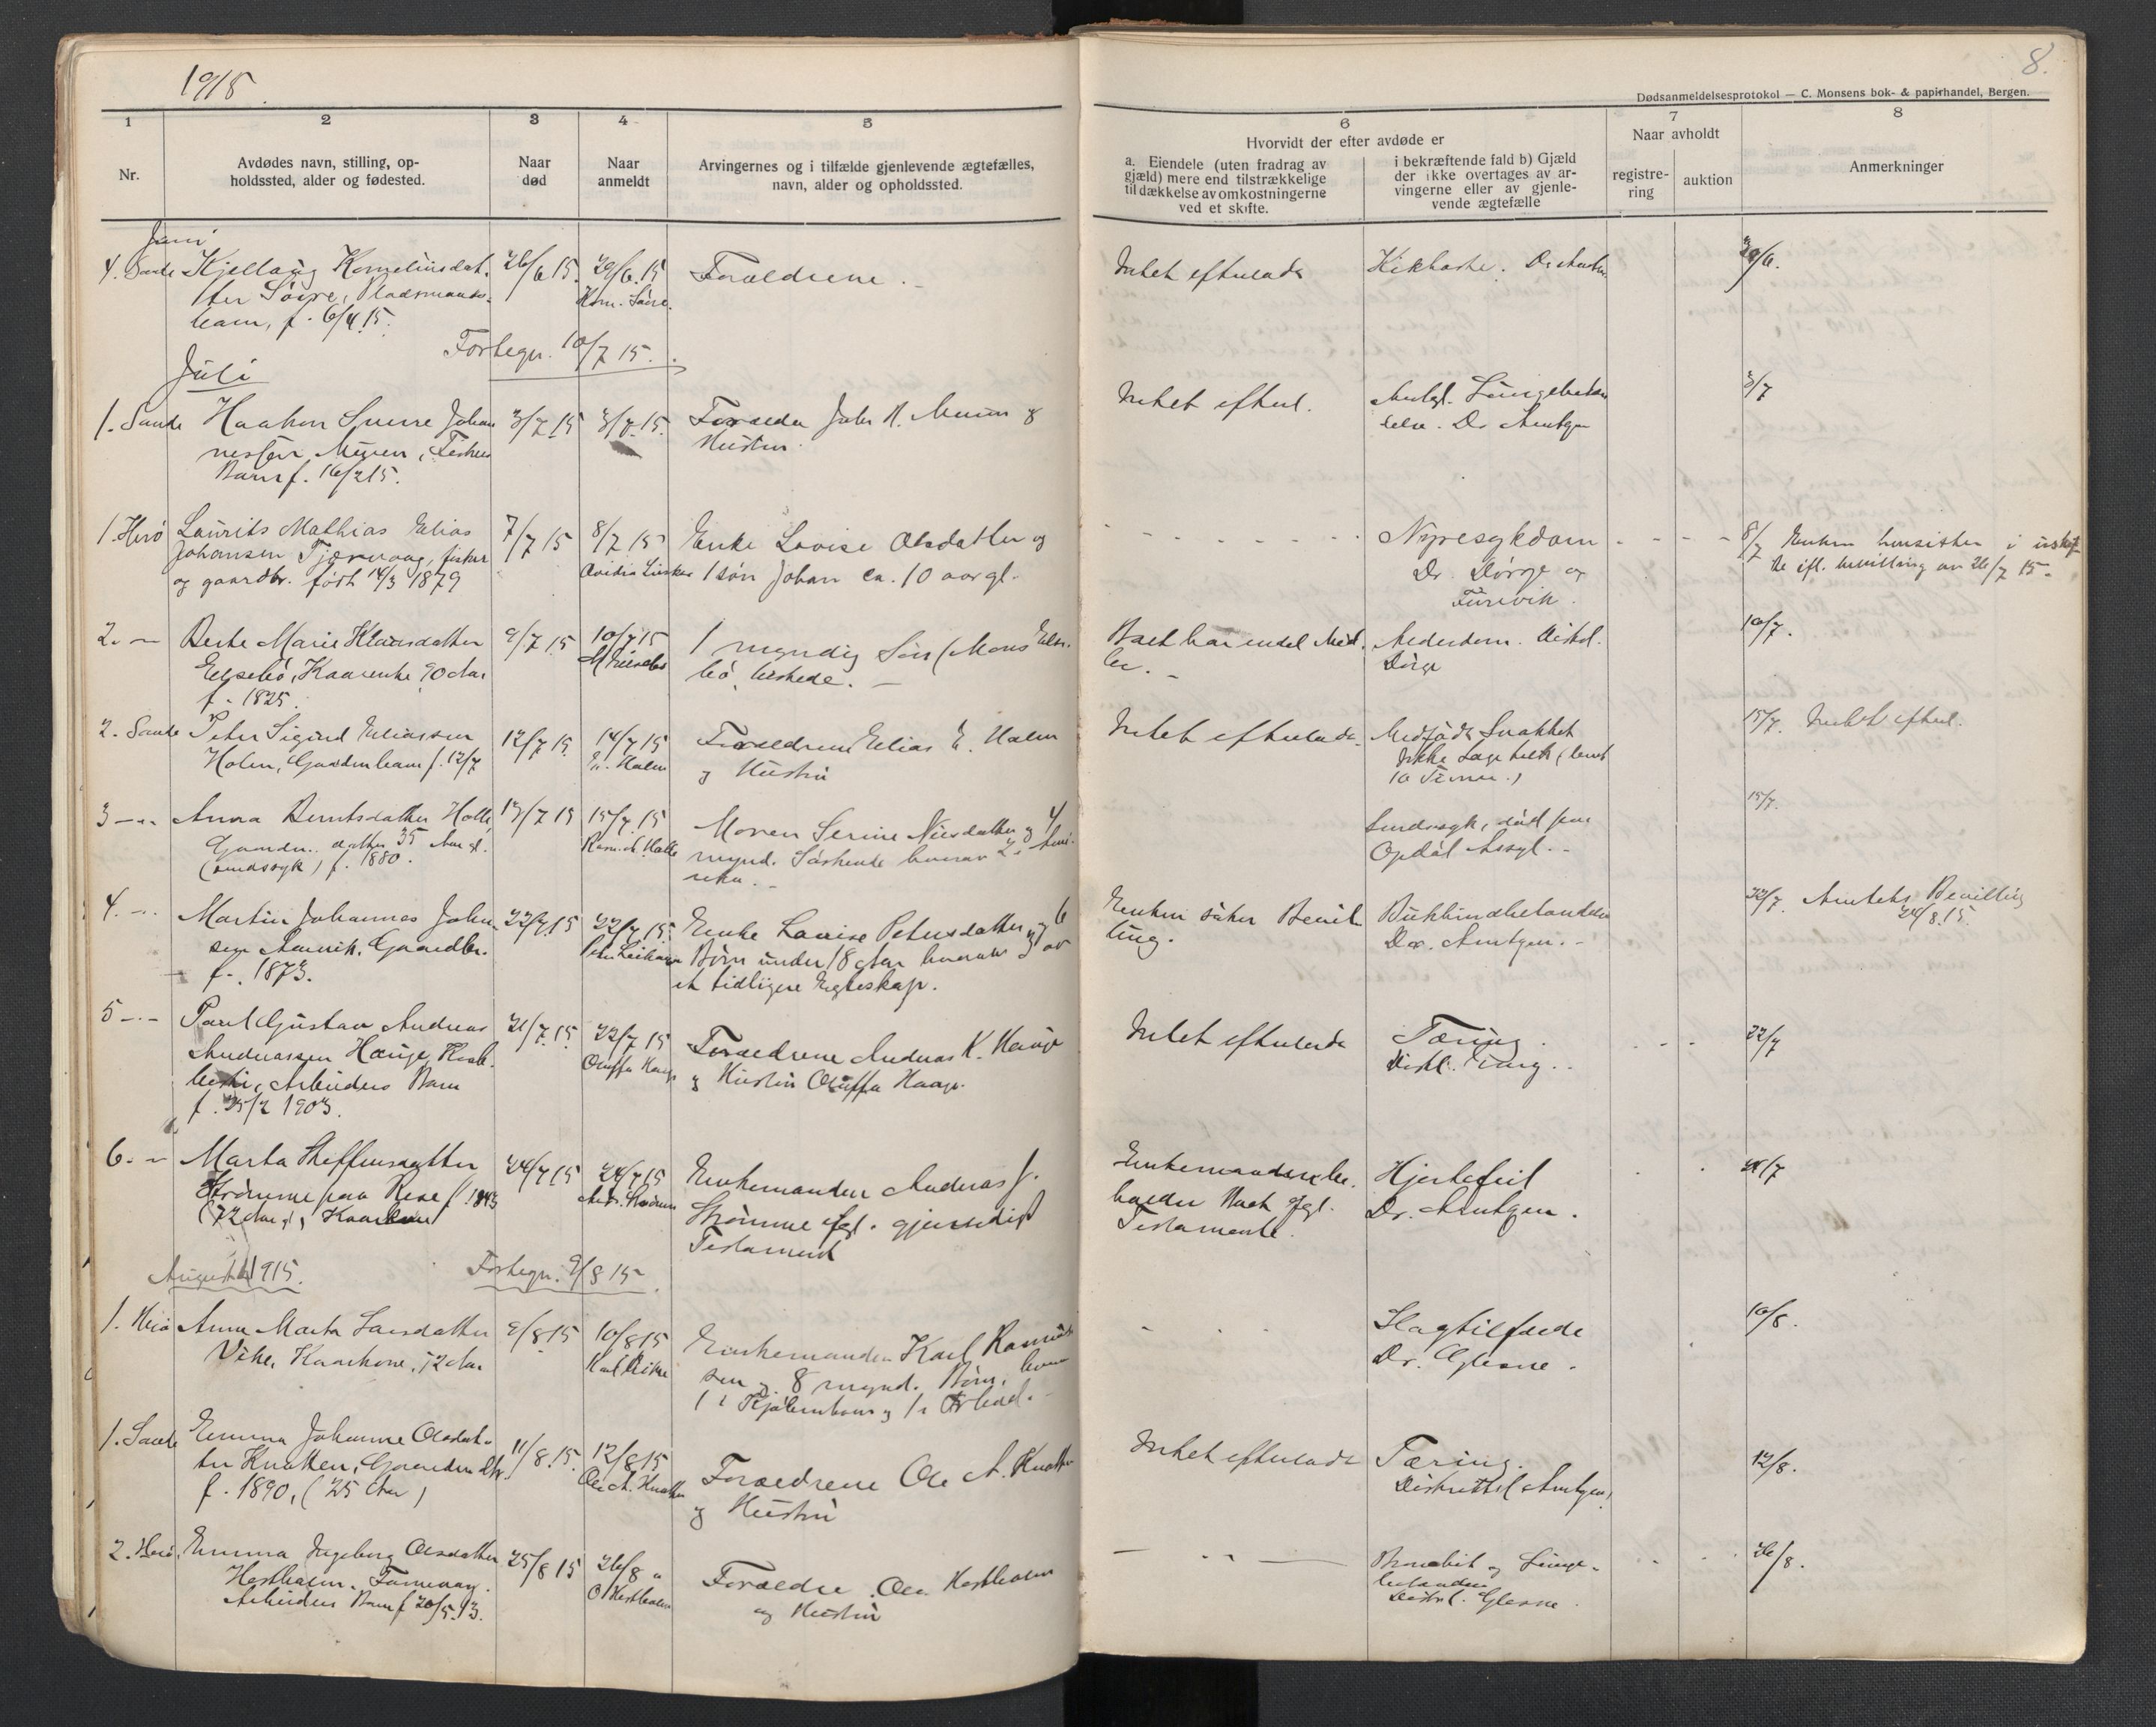 1915
8.
Dødsanmeldelsesprotokol — C. Monsens bok- & papirhandel, Bergen.
1
2
3
4
5
6
7
8
Nr.
Avdødes navn, stilling, op-
holdssted, alder og fødested.
Naar
død
Naar
anmeldt
Arvingernes og i tilfælde gjenlevende ægtefælles,
navn, alder og opholdssted.
Hvorvidt der efter avdøde er
a. Eiendele (uten fradrag av
gjæld) mere end tilstrækkelige
til dækkelse av omkostningerne
ved et skifte.
i bekræftende fald b) Gjæld
der ikke overtages av ar-
vingerne eller av gjenle-
vende ægtefælle
Naar avholdt
registre-
ring
auktion
Anmerkninger
Juni
4. Sande Kjellaug Korneliusdat-
ter Søvre, Pladsmands-
barn, f. 6/4 15.
26/6 15.
29/6 15
Korn. Søvre.
Forældrene.
Intet efterladt
Kikhoste.
29/6.
Fortegn. 10/7 15.
Juli
1. Sande Haakon Sverre Johan
nessen Muren, Fiskers
Barn f. 16/2 15.
3/7 15
3/7 15.
Forældre Johs N. Muren og
Hustru.
Intet efterl.
Lungebetæn
delse. Dr Arntzen
3/7
1. Herö Laurits Mathias Elias
Johansen Tjærvaag, fisker
og gaardbr. født 14/3 1879
7/7 15
8/7 15
Enke Lovise Olsdatter og
1 søn Johan ca. 10 aar gl.
Nyresykdom
Dr. Dörge og
Furevik.
8/7 Enken hensitter i uskif-
te ifl. bevilling av 26/7 15.
2. — Berte Marie Klausdatter
Eggesbö, Kaarenke 90 Aar
f. 1825.
9/7 15
10/7 15
1 myndig Søn (Mons
bö, tilstede.
Boet har endel Mid-
ler.
Alderdom. Distrl.
Dörge
10/7.
2. Sande Peter Sigurd Eliassen
Holen, Gaardm. barn f. 12/7
12/7 15
14/7 15
E. Holen
Forældrene Elias E. Holen
og Hustru
Intet efterladt.
Medfødt Svakhet
Ikke Læge brukt (levet
10 Timer.)
15/7. Intet efterl.
3 — Anna Berntsdatter Holle
Gaardm. datter 35 Aar gl.
(sindssyk) f. 1880.
13/7 15
15/7 15
Moren Serine Nilsdatter og 4
mynd. Søskende hvorav 2 i Ame-
rika.
Sindssyk, død paa
Opdøl Asyl.
15/7.
4. — Martin Johannes Johan-
sen Aurvik, Gaardbr.
f. 1873.
22/7 15
22/7 15
Enke Lovise Petersdatter og 6
Børn under 18 Aar hvorav 3 av
et tidligere Egteskap.
Enken søker Bevil-
ling.
Blindtarmbetændelse
Dr. Arntzen.
22/7. Amtets Bevilling
24/8.15.
5 — Paul Gustav Andreas
Andreassen Hauge,
Arbeiders Barn
f. 25/2 1903.
21/7.15.
22/7 15
Oluffa Hauge
Forældrene Andreas K. Hauge
og Hustru Oluffa Hauge.
Intet efterladt
Tæring.
22/7
6. — Marta Steffensdatter
Strömme paa Reise f. 1843
(72 Aar gl. Kaarkone
24/7 15
24/7 15
Andr. Strömme
Enkemanden Andreas J.
Strömme ifgl. gjensidigt
Testament
Enkemanden be-
holder Boet ifgl.
Testamente.
Hjertefeil
Dr. Arntzen.
24/7
August 1915.
Fortegn. 9/8 15
1. Herö Anne Marta Larsdatter
Vike, Kaarkone, 72 Aar
9/8 15
10/8 15
Karl Vike
Enkemanden Karl Rasmus-
sen og 8 mynd. Børn, hvorav
1 i
Slagtilfælde
Dr. Glesne.
10/8.
1. Sande Emma Johanne Olsdat-
ter Knutten, Gaardm. dtr.
f. 1890, (25 Aar)
11/8.15.
12/8 15
Ole A. Knutten
Forældrene Ole A. Knutten
og Hustru
Intet efterladt
Tæring.
Distriktsl. Arntzen
12/8.
2. Herö. Emma Ingeborg Olsdatter
Hestholm, Fosnavaag.
Arbeiders Barn f 20/5.13.
25/8 15
26/8 "
O. Hestholm
Forældre Ole Hestholm
og Hustru
Bronchit og Lunge-
betændelse
Distrl. Glesne.
26/8.